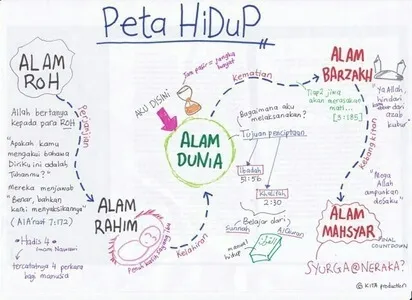 Peta HiDuP
ALAM
ROH
Allah bertanya
kepada para ROH
"Apakah kamu
mengakui bahawa
Diriku ini adalah
Tuhanmu?"
Mereka menjawab
"Benar, bahkan
kami menyaksikannya"
(Al A'raaf 7:172)
Hadis 4
Imam Nawawi
tercatatnya 4 perkara
bagi manusia
Perjanjian
ALAM
RAHIM
Penuh kasih sayang
Kelahiran
AKU DISINI
Jam pasir = jangka
hayat
ALAM
DUNIA
Bagaimana aku
melaksanakan?
Tujuan penciptaan
Ibadah
51:56
Khalifah
2:30
Belajar dari
Sunnah
Al Quran
manual
hidup
Kematian
ALAM
BARZAKH
Tiap2 jiwa
akan merasakan
mati...
[3:185]
"Ya Allah,
hindari
azab
kubur"
Kebangkitan
"Moga
Allah
ampunkan
dosaku"
ALAM
MAHSYAR
FINAL
COUNTDOWN
SYURGA@NERAKA?
© KITA production